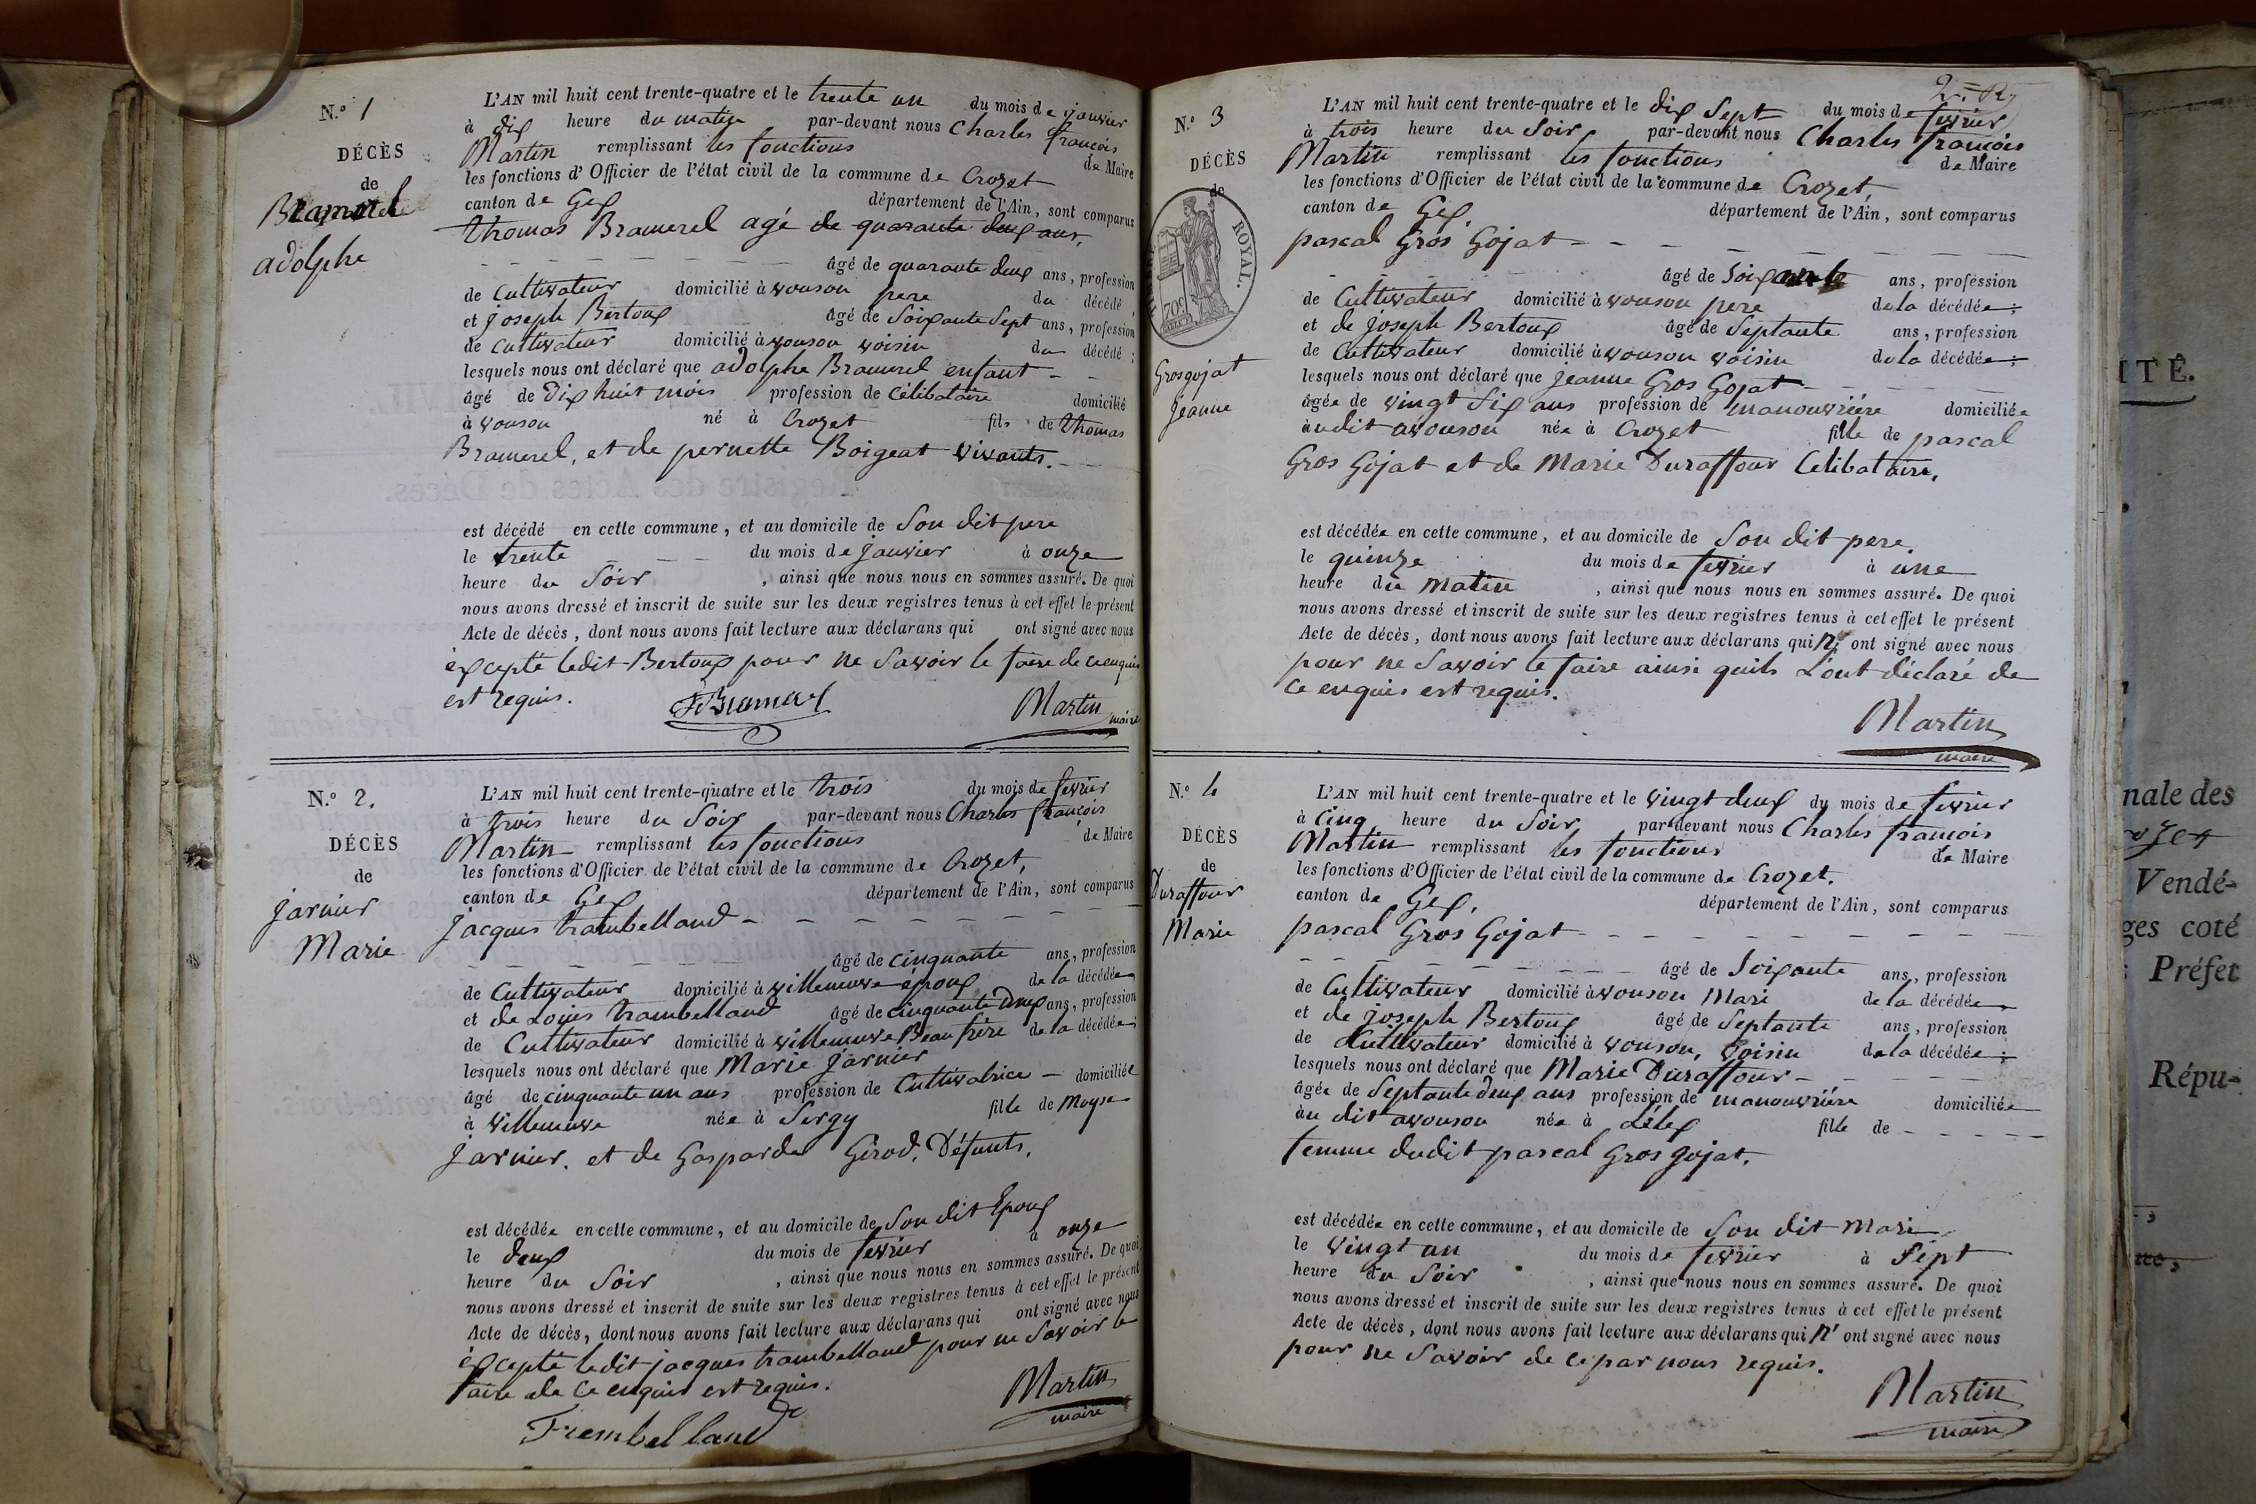 N.° 1
DÉCÈS
de
Bramerel
adolphe
L'AN mil huit cent trente-quatre et le trente un du mois de janvier
à dix heure du matin par-devant nous Charles françois
Martin remplissant les fonctions de Maire
les fonctions d'Officier de l'état civil de la commune de Crozet
canton de Gex département de l'Ain, sont comparus
thomas Bramerel agé de quarante deux ans,
âgé de quarante deux ans, profession
de Cultivateur domicilié à vouson pere du décédé,
et joseph Bertoux âgé de Soixante Sept ans, profession
de cultivateur domicilié à vouson voisin du décédé;
lesquels nous ont déclaré que adolphe Bramerel enfant
âgé de Dix huit mois profession de Célibataire domicilié
à vouson né à Crozet fils de thomas
Bramerel, et de pernette Boigeat vivants.
est décédé en cette commune, et au domicile de Son dit pere
le trente du mois de janvier à onze
heure du Soir, ainsi que nous nous en sommes assuré. De quoi
nous avons dressé et inscrit de suite sur les deux registres tenus à cet effet le présent
Acte de décès, dont nous avons fait lecture aux déclarans qui ont signé avec nous
excepté ledit Bertoux pour ne Savoir le faire de ce enquis
est requis.
Bramerel Martin
maire
N.° 2.
DÉCÈS
de
jarnier
Marie
L'AN mil huit cent trente-quatre et le trois du mois de fevrier
à trois heure du Soir par-devant nous Charles françois
Martin remplissant les fonctions de Maire
les fonctions d'Officier de l'état civil de la commune de Crozet,
canton de Gex département de l'Ain, sont comparus
jacques trambelland
âgé de cinquante ans, profession
de Cultivateur domicilié à villeneuve époux de la décédée,
et de Louis trambelland âgé de cinquante deux ans, profession
de Cultivateur domicilié à villeneuve Beau frère de la décédée;
lesquels nous ont déclaré que Marie jarnier
âgé de cinquante un ans profession de Cultivatrice domiciliée
à villeneuve née à Sergy fille de Moyse
jarnier. et de Gasparde Girod. Défunts.
est décédée en cette commune, et au domicile de Son dit Epoux
le deux du mois de fevrier à onze
heure du Soir, ainsi que nous nous en sommes assuré. De quoi
nous avons dressé et inscrit de suite sur les deux registres tenus à cet effet le présent
Acte de décès, dont nous avons fait lecture aux déclarans qui ont signé avec nous
excepté ledit jacques trambelland pour ne Savoir le
faire de ce enquis est requis.
Martin
maire
Frembelland
N.° 3
DÉCÈS
de
ROYAL.
70c
Grosgojat
Jeanne
L'AN mil huit cent trente-quatre et le dix Sept du mois de fevrier
à trois heure du Soir, par-devant nous Charles françois
Martin remplissant les fonctions de Maire
les fonctions d'Officier de l'état civil de la commune de Crozet,
canton de Gex, département de l'Ain, sont comparus
pascal Gros Gojat
âgé de Soixante ans, profession
de Cultivateur domicilié à vouson pere de la décédée;
et de joseph Bertoux âgé de Septante ans, profession
de Cultivateur domicilié à vouson voisin de la décédée;
lesquels nous ont déclaré que jeanne Gros Gojat
âgée de vingt Six ans profession de manouvrière domiciliée
au dit avouson née à Crozet fille de pascal
Gros Gojat et de Marie Duraffour Célibataire,
est décédée en cette commune, et au domicile de Son dit pere,
le quinze du mois de fevrier à une
heure du Matin, ainsi que nous nous en sommes assuré. De quoi
nous avons dressé et inscrit de suite sur les deux registres tenus à cet effet le présent
Acte de décès, dont nous avons fait lecture aux déclarans qui n' ont signé avec nous
pour ne Savoir le faire ainsi quils L'ont déclaré de
ce enquis est requis.
Martin
maire
N.° 4
DÉCÈS
de
Duraffour
Marie
L'AN mil huit cent trente-quatre et le vingt deux du mois de fevrier
à Cinq heure du Soir, par-devant nous Charles françois
Martin remplissant les fonctions de Maire
les fonctions d'Officier de l'état civil de la commune de Crozet.
canton de Gex, département de l'Ain, sont comparus
pascal Gros Gojat
âgé de Soixante ans, profession
de Cultivateur domicilié à vouson Mari de la décédée,
et de joseph Bertoux âgé de Septante ans, profession
de Cultivateur domicilié à vouson, voisin de la décédée;
lesquels nous ont déclaré que Marie Duraffour
âgée de Septante deux ans profession de manouvrière domiciliée
au dit avouson née à Lélex fille de
femme dudit pascal Gros gojat.
est décédée en cette commune, et au domicile de Son dit Mari
le vingt un du mois de fevrier à Sept
heure du Soir, ainsi que nous nous en sommes assuré. De quoi
nous avons dressé et inscrit de suite sur les deux registres tenus à cet effet le présent
Acte de décès, dont nous avons fait lecture aux déclarans qui n' ont signé avec nous
pour ne Savoir de ce par nous requis.
Martin
maire
ITÉ.
nale des
Vendé-
ges coté
Préfet
Répu-